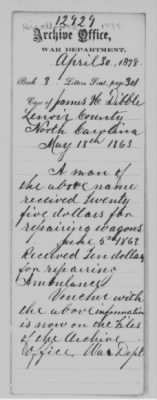 12929
Archive Office,
WAR DEPARTMENT.
April 30, 1878.
Book 3. Letters Sent, page 301
Case of James W. Dibble
Lenoir County
North Carolina
May 18th 1863
A man of
the above name
received twenty
five dollars for
repairing wagons
June 5th 1863
Received Ten dollars
for repairing
Ambulance
Voucher with
the above information
is now on the files
of the Archive
Office, War Dept